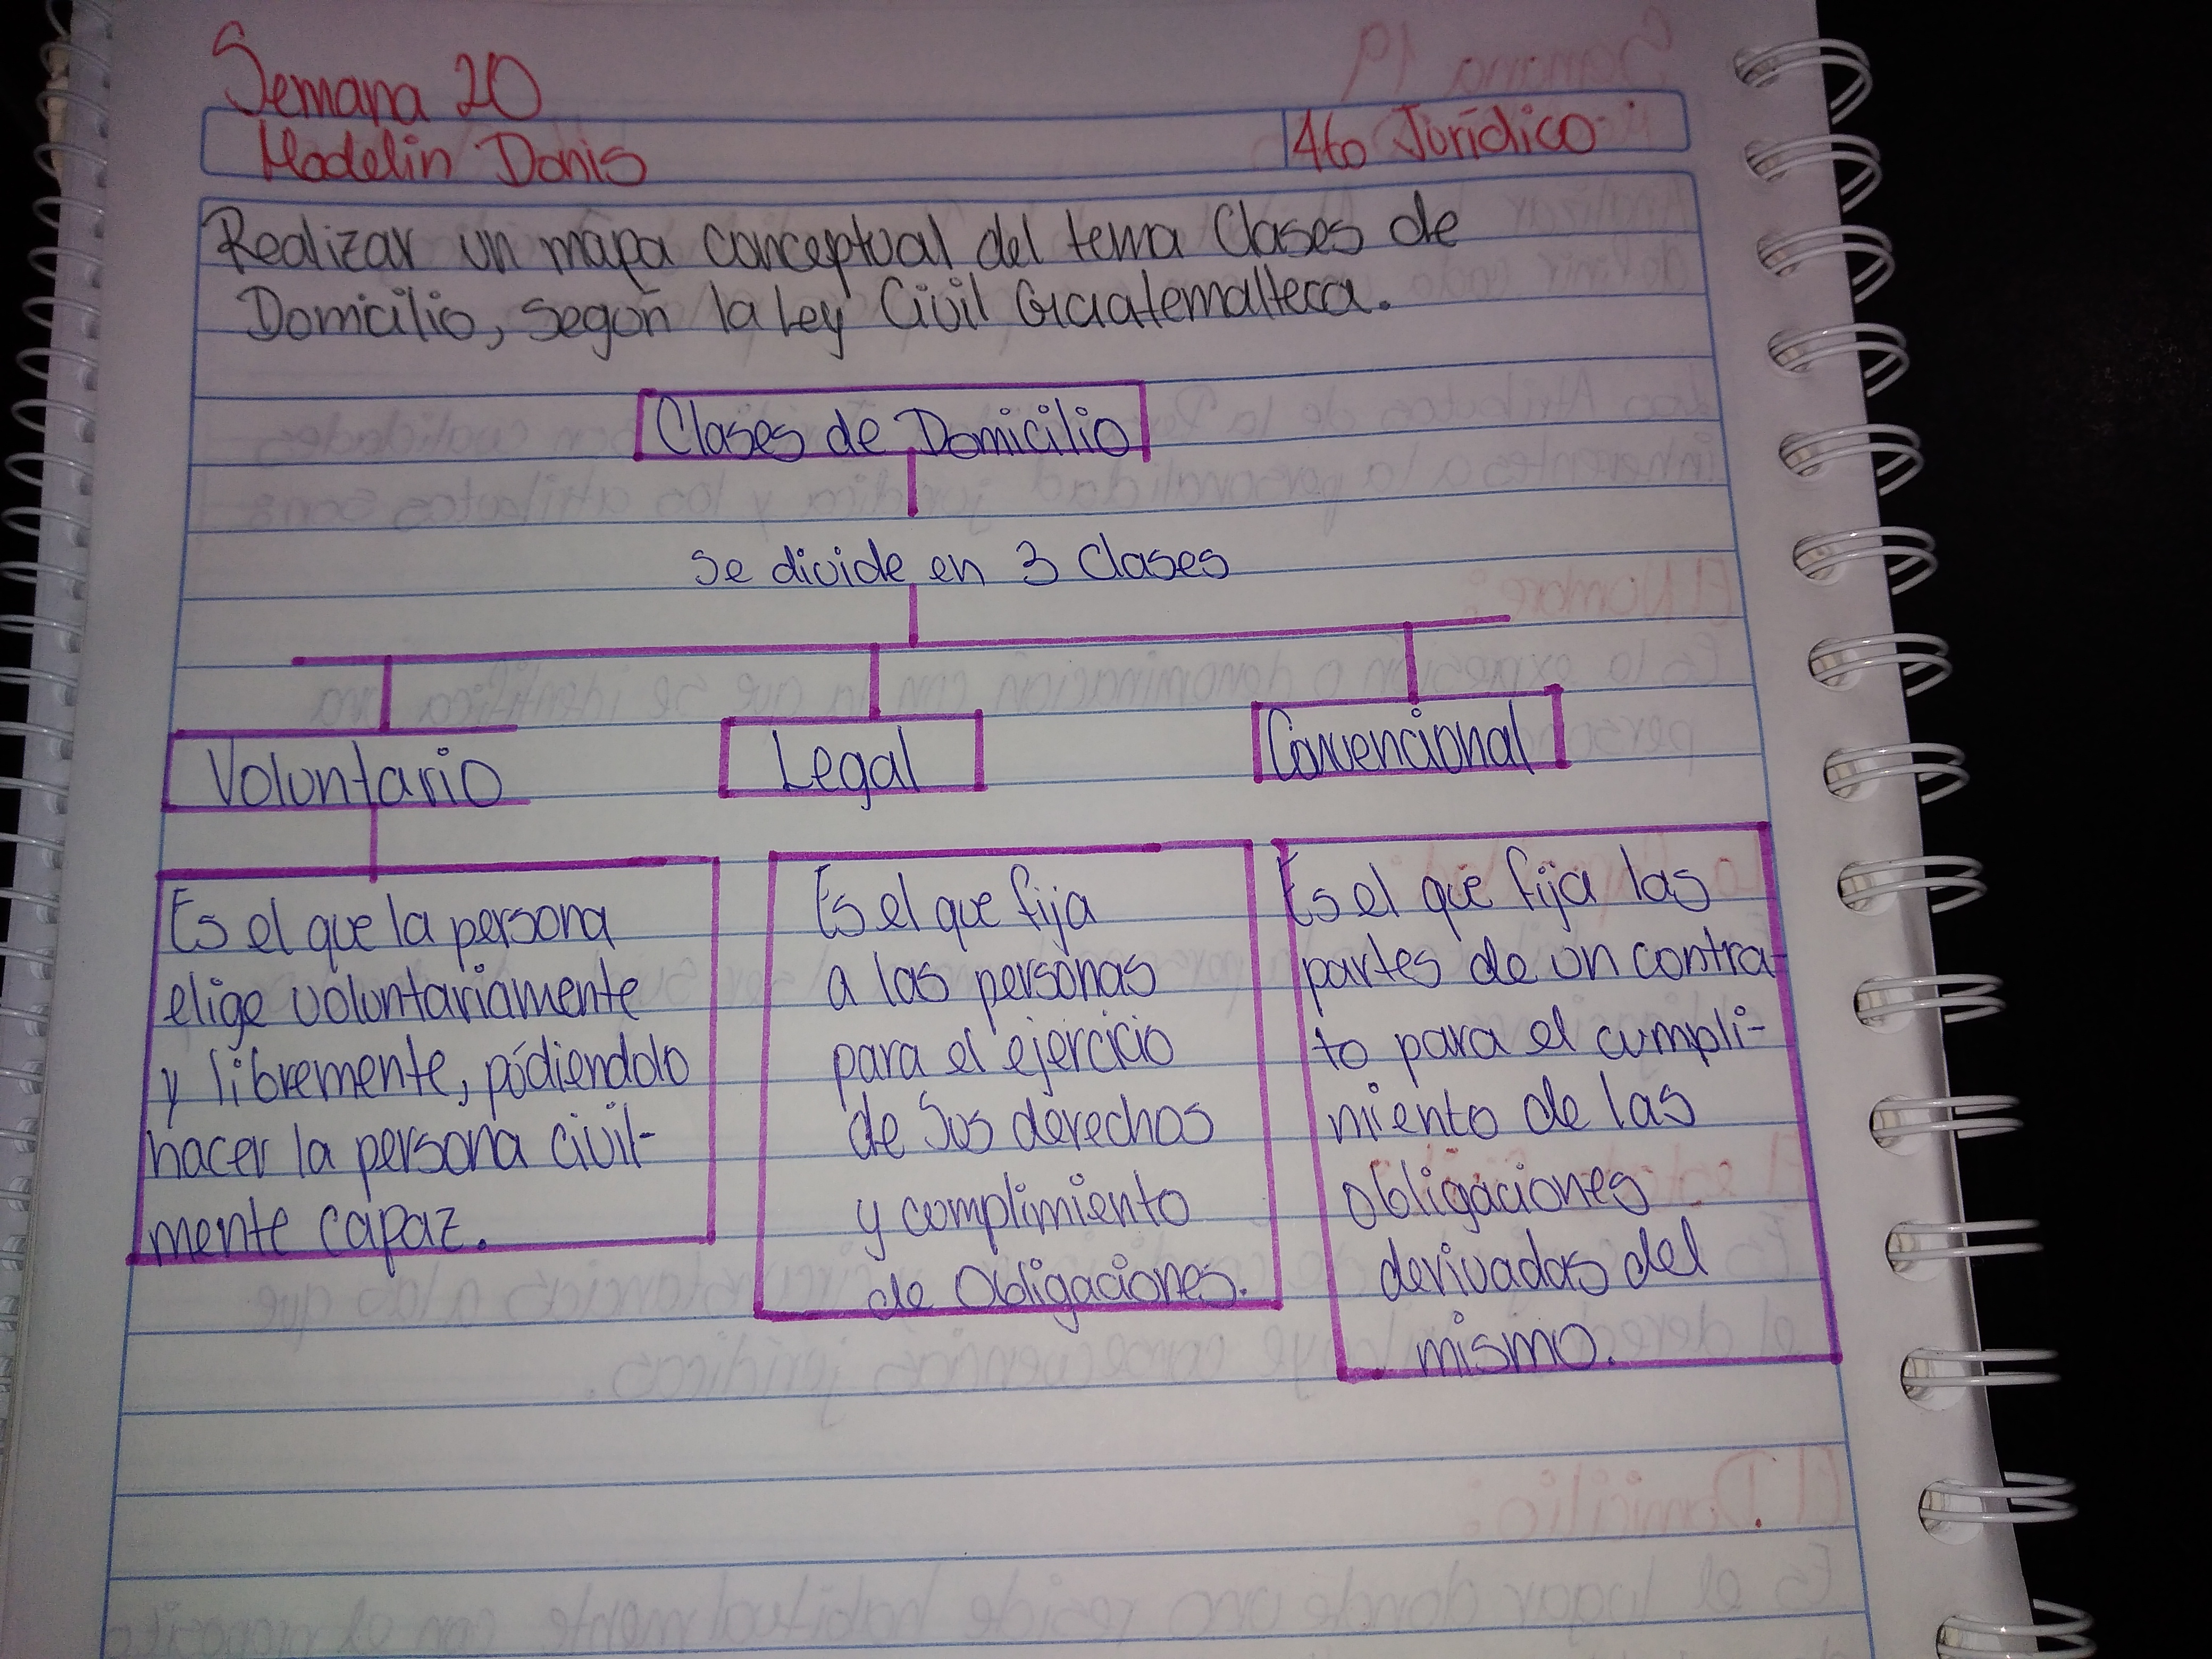 Semana 20
Madelin Donis
4to Jurídico
Realizar un mapa conceptual del tema Clases de
Domicilio, según la Ley Civil Guatemalteca.
Clases de Domicilio
se divide en 3 clases
Voluntario
Legal
Convencional
Es el que la persona
elige voluntariamente
y libremente, pódiendolo
hacer la persona civil-
mente capaz.
Es el que fija
a las personas
para el ejercicio
de sus derechos
y complimiento
de Obligaciones.
Es el que fija las
partes de un contra-
to para el cumpli-
miento de las
obligaciones
derivadas del
mismo.